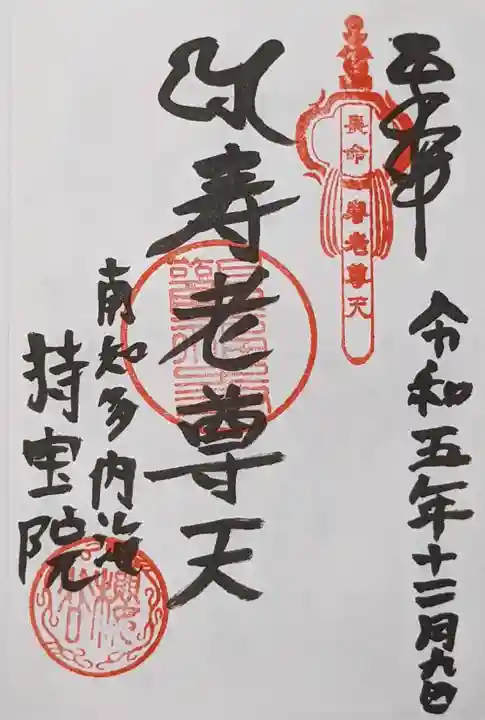 奉拝
令和五年十二月九日
長命
寿老尊天
寿老尊天
南知多内海
持宝院